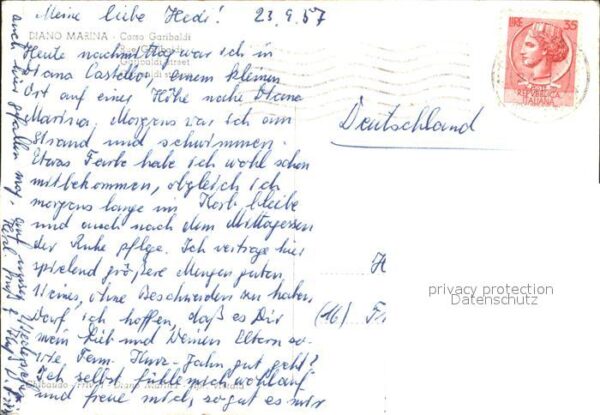 Meine liebe Hedi! 23.9.57
DIANO MARINA - Corso Garibaldi
Rue Garibaldi
Garibaldi Street
Heute nachmittag war ich in
Diana Castello, einem kleinen
Ort auf einer Höhe nahe Diana
Marina, Morgens war ich am
Strand und schwimmen.
Etwas Farbe habe ich wohl schon
mitbekommen, obgleich ich
morgens lange im Korb bleibe
und auch nach dem Mittagessen
der Ruhe pflege. Ich vertrage hier
spielend größere Mengen guten
Weines, ohne Beschwerden zu haben.
Darf ich hoffen, daß es Dir
mein Lieb und Deinen Eltern so-
wie Fam. Kurz-Jahn gut geht?
Ich selbst fühle mich wohlauf
und freue mich, so gut es mir
auch hier gefallen mag, auf unser Wiedersehen
Herzl. Gruß &
LIRE 35
REPUBBLICA
ITALIANA
Deutschland
H
(16) Fr
privacy protection
Datenschutz